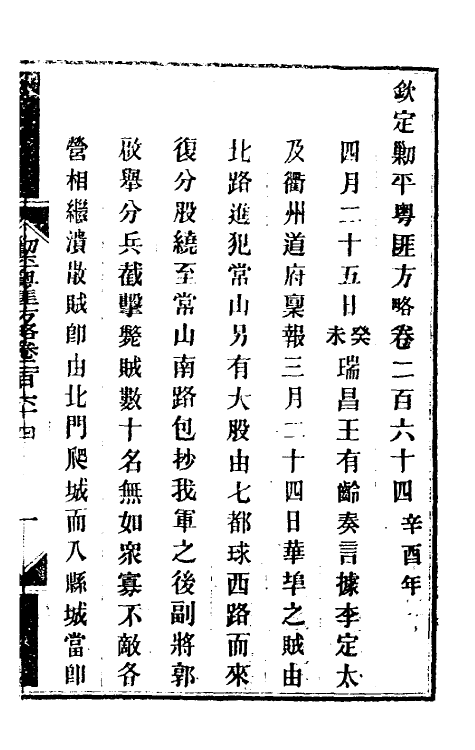 欽定勦平粵匪方略卷二百六十四辛酉年
四月二十五日癸未瑞昌王有齡奏言據李定太
及衢州道府稟報三月二十四日華埠之賊由
北路進犯常山另有大股由七都球西路而來
復分股繞至常山南路包抄我軍之後副將郭
啟舉分兵截擊斃賊數十名無如衆寡不敵各
營相繼潰散賊卽由北門爬城而入縣城當卽
一